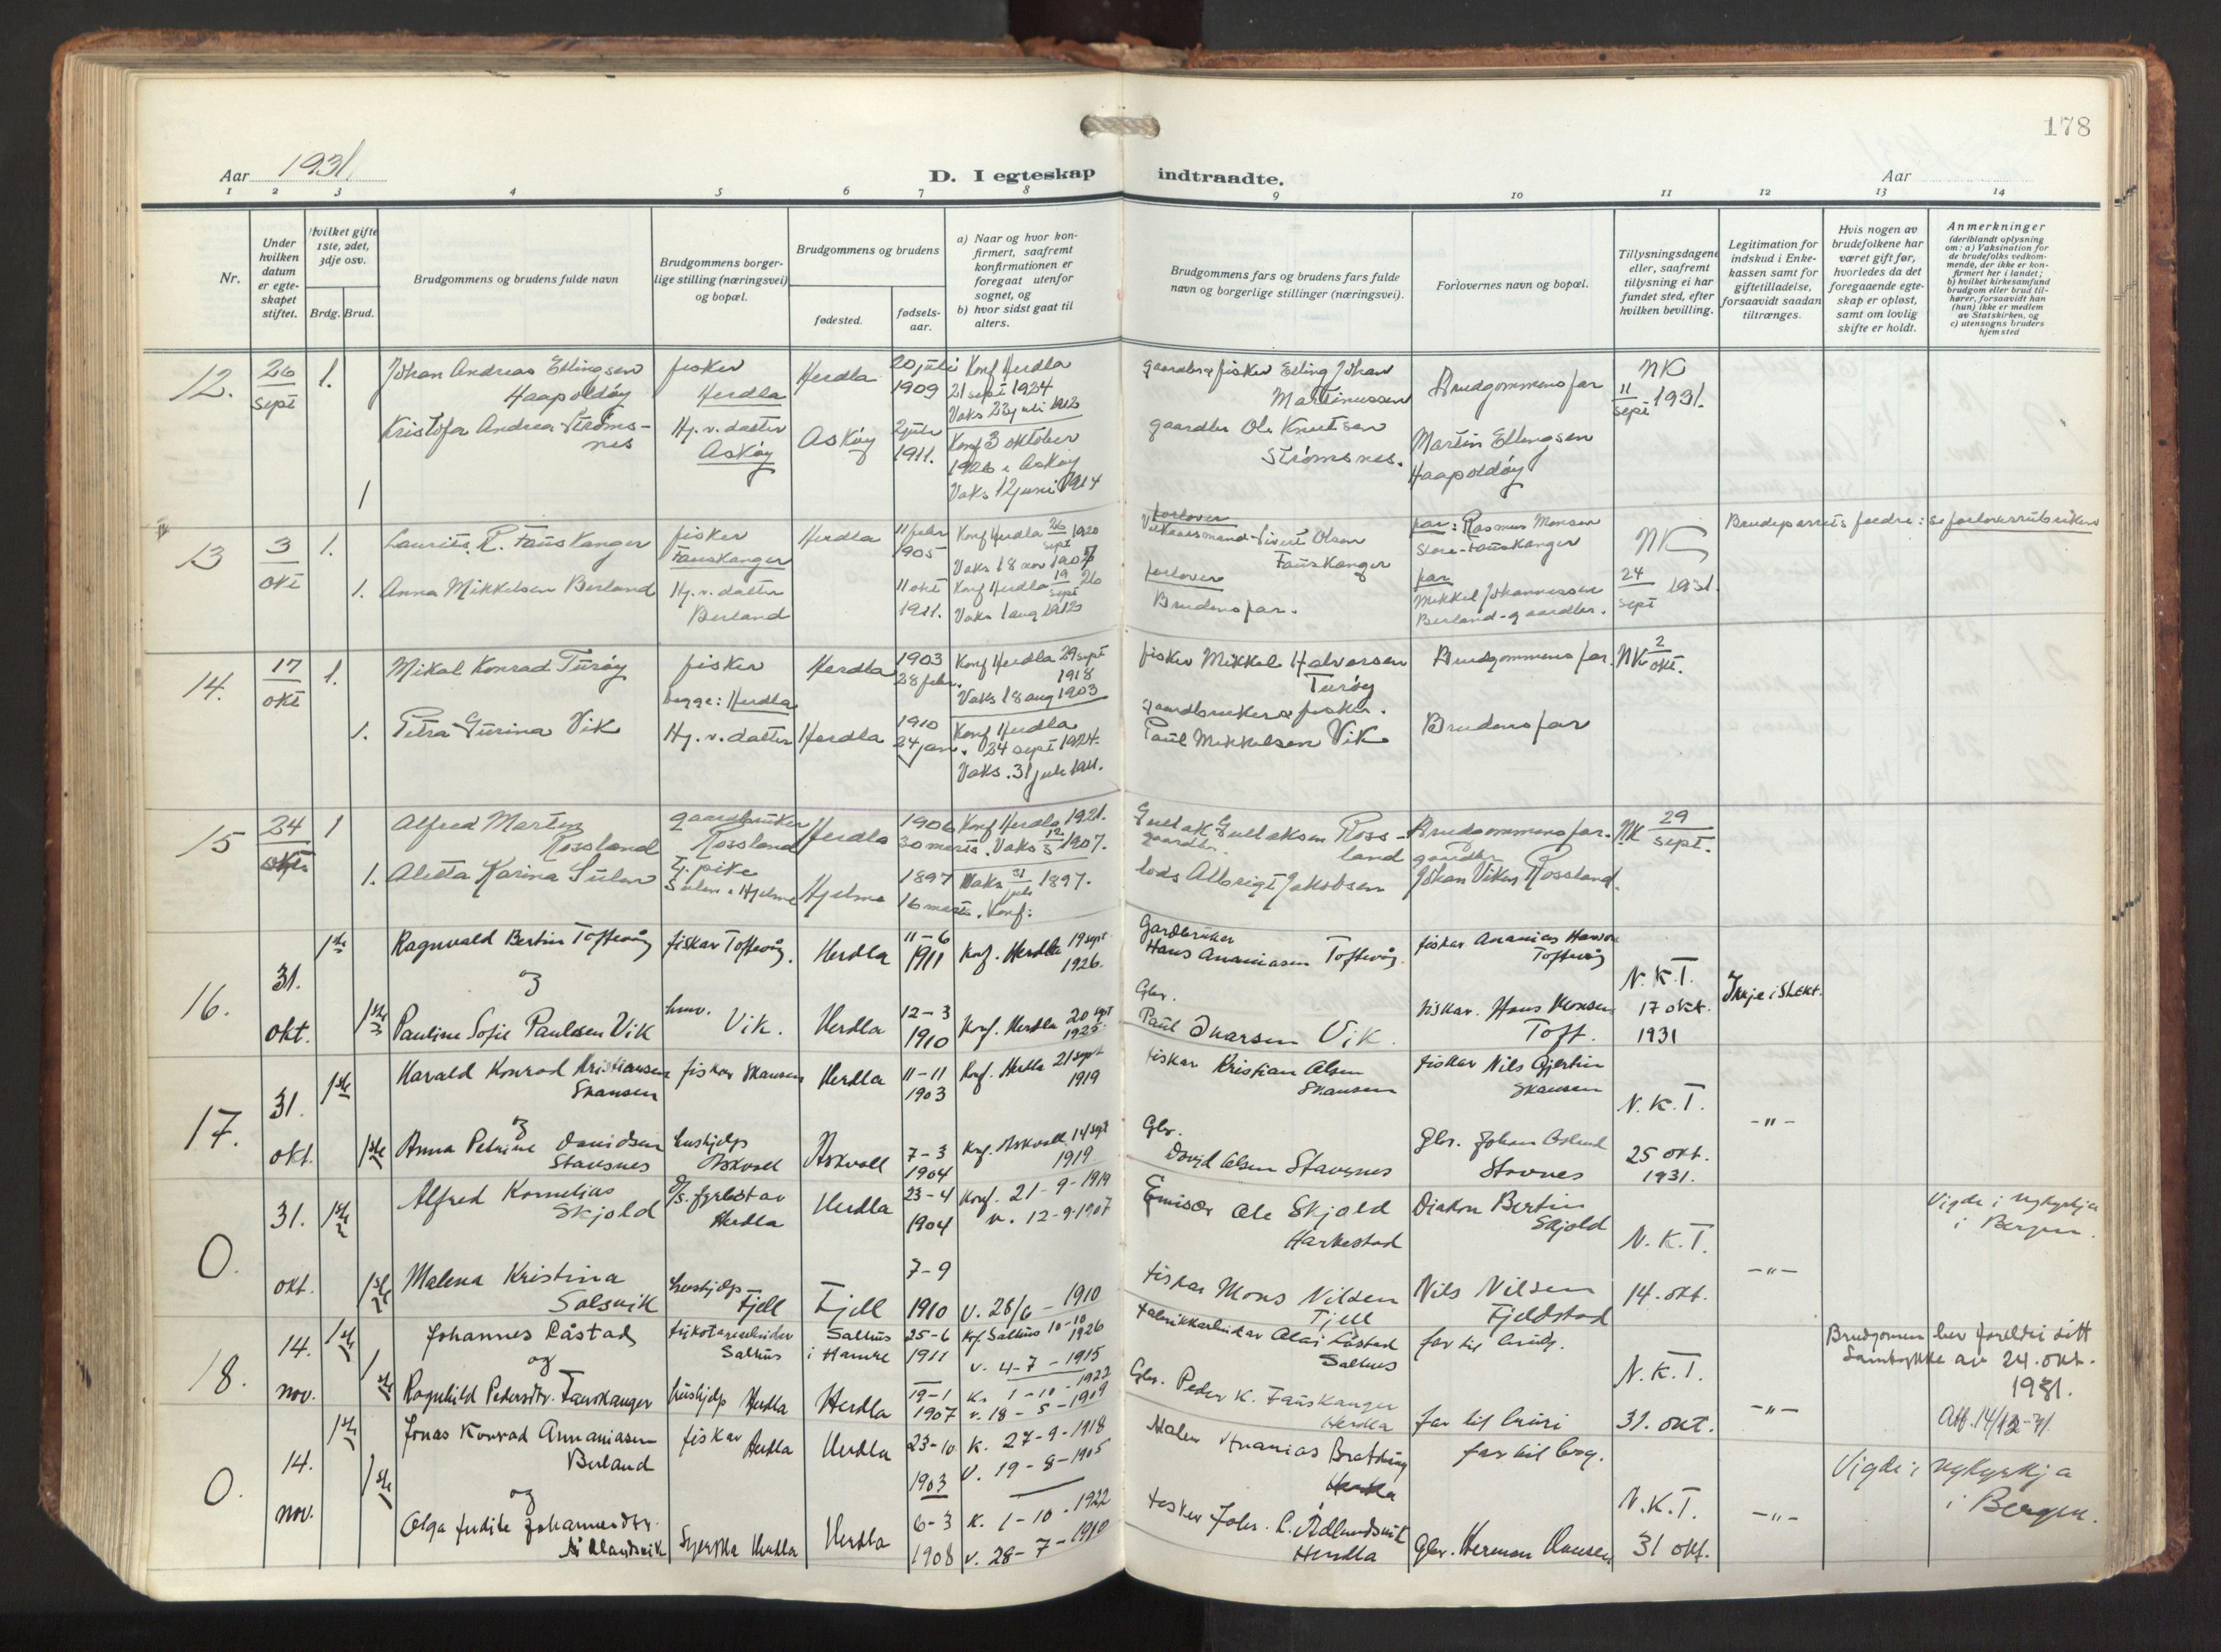 178
Aar 1931
D. I egteskap indtraadte.
Aar
1 2 3 4 5 6 7 8 9 10 11 12 13 14
Nr.
Under hvilken datum er egteskapet stiftet.
Hvilket gifte 1ste, 2det, 3dje osv.
Brdg. Brud.
Brudgommens og brudens fulde navn
Brudgommens borgerlige stilling (næringsvei) og bopæl.
Brudgommens og brudens
fødested.
fødselsaar.
a) Naar og hvor konfirmert, saafremt konfirmationen er foregaat utenfor sognet, og
b) hvor sidst gaat til alters.
Brudgommens fars og brudens fars fulde navn og borgerlige stillinger (næringsvei).
Forlovernes navn og bopæl.
Tillysningsdagene eller, saafremt tillysning ei har fundet sted, efter hvilken bevilling.
Legitimation for indskud i Enkekassen samt for giftetilladelse, forsaavidt saadan tiltrænges.
Hvis nogen av brudefolkene har været gift før, hvorledes da det foregaaende egteskap er opløst, samt om lovlig skifte er holdt.
Anmerkninger
(deriblandt oplysning om: a) Vaksination for de brudefolks vedkommende, der ikke er konfirmert her i landet;
b) hvilket kirkesamfund brudgom eller brud tilhører, forsaavidt han (hun) ikke er medlem av Statskirken, og
c) utensogns bruders hjemsted
12. 26 sept 1. Johan Andreas Ellingsen Haapoldøy fisker Herdla Herdla 20 juli 1909 Konf Herdla 21 sept 1924 Vaks 23 juli 1913 gaardbr & fisker Elling Johan Martinussen Brudgommens far NK 11 sept 1931.
1 Kristofa Andrea Strømsnes Hj. v. datter Askøy Askøy 2 juli 1911. Konf 3 oktober 1926 i Askøy Vaks 12 juni 1914 gaardbr Ole Knutsen Strømsnes. Martin Ellingsen Haapoldøy
13 3 okt 1. Laurits R. Fauskanger fisker Fauskanger Herdla 11 febr 1905 Konf Herdla 26 sept 1920 Vaks 18 nov forlover Sivert Olsen Fauskanger far: Rasmus Monsen Store-Fauskanger NK 24 sept 1931. Brudeparrets fædre: se forloverrubrikken
1. Anna Mikkelsen Berland Hj. v. datter Berland 11 okt 1911. Konf Herdla 19 sept 26 Vaks 1 aug 1912 forlover Brudens far. far Mikkel Johannessen Berland - gaardbr.
14. 17 okt 1. Mikal Konrad Turøy fisker begge: Herdla Herdla 1903 28 febr. Konf Herdla 29 sept 1918 Vaks 18 aug 1903 fisker Mikkel Halvorsen Turøy Brudgommens far. NK 2 okt.
1. Petra Gurina Vik Hj. v. datter Herdla 1910 24 jan. Konf Herdla 24 sept 1924. Vaks. 31 juli 1911. gaardbruker & fisker. Paul Mikkelsen Vik Brudens far
15 24 okt 1 Alfred Martin Rossland gaardbruker Rossland Herdla 1906 30 marts. Konf Herdla 1921. Vaks 12/3 1907. Gullak Gullaksen Rossland gaardbr. Brudgommens far. NK 29 sept.
1. Aletta Karina Sulen Tj. pike Sulen i Hjelme Hjelme 1897 16 marts. Vaks 31 juli 1897. Konf: lods Albrigt Jakobsen gaardbr Johan Viken Rossland.
16. 31. okt. 1ste Ragnvald Bertin Toftevåg fiskar Toftevåg. Herdla 11-6 1911 Konf. Herdla 19 sept. 1926. Gardbruker Hans Ananiasen Toftevåg. fiskar Ananias Hansen Toftevåg N.K.T. 17 okt. 1931 Ikkje i slekt.
og
1ste Pauline Sofie Paulsen Vik Vik. Herdla 12-3 1910 Konf. Herdla 20 sept 1925. Gbr. Paul Ivarsen Vik. fiskar. Hans Monsen Toft.
17. 31. okt. 1ste Harald Konrad Kristiansen Skansen fiskar Skansen Herdla 11-11 1903 Konf. Herdla 21 sept 1919 fiskar Kristian Olsen Skansen fiskar Nils Gjertin Skansen N.K.T. 25 okt. 1931. -"-
og
1ste Anna Petrine Davidsen Stavenes hushjelp Askvoll Askvoll 7-3 1904 Konf. Askvoll 14 sept 1919 Gbr. David Olsen Stavenes Gbr. Johan Stavnes
0. 31. okt. 1ste Alfred Kornelius Skjold Herdla Herdla 23-4 1904 Konf. 21-9-1919 v. 12-9-1907 Emisær Ole Skjold Harkestad Diakon Bertin Skjold N.K.T. 14. okt. -"- Vigde i nykyrkja i Bergen.
1ste Malena Kristina Solsvik hushjelp Fjell Fjell 7-9 1910 v. 28/6 - 1910 fiskar Mons Nilsen Fjell Nils Nilsen Fjeldstad
18. 14. nov. 1ste Johannes Låstad trikotarbeider Salhus Salhus i Hamre 25-6 1911 Kf. Salhus 10-10 1926 v. 4-7-1915 fabrikkarbeidar Låstad Salhus far til brudg. N.K.T. 31. okt. -"- Brudgomen hev foreldri sitt samtykke av 24. okt. 1931.
og
1ste Ragnhild Pedersdtr. Fauskanger hushjelp Herdla Herdla 19-1 1907 k. 1-10-1922 v. 18-5-1909 Gbr. Peder K. Fauskanger Herdla far til bruri
0. 14. nov. 1ste Jonas Konrad Annaniasen Berland fiskar Herdla Herdla 23-10 1903 k. 27-9-1918 v. 19-8-1905 Malar Ananias far til brg. N.K.T. 31 okt. -"- Vigde i nykyrkja i Bergen.
og
1ste Olga Judite Johannesdtr. Ådlandsvik Syerska Herdla Herdla 6-3 1908 k. 1-10-1922 v. 28-7-1910 fisker Johs. Ådlandsvik Herdla Gbr. Herman Hansen